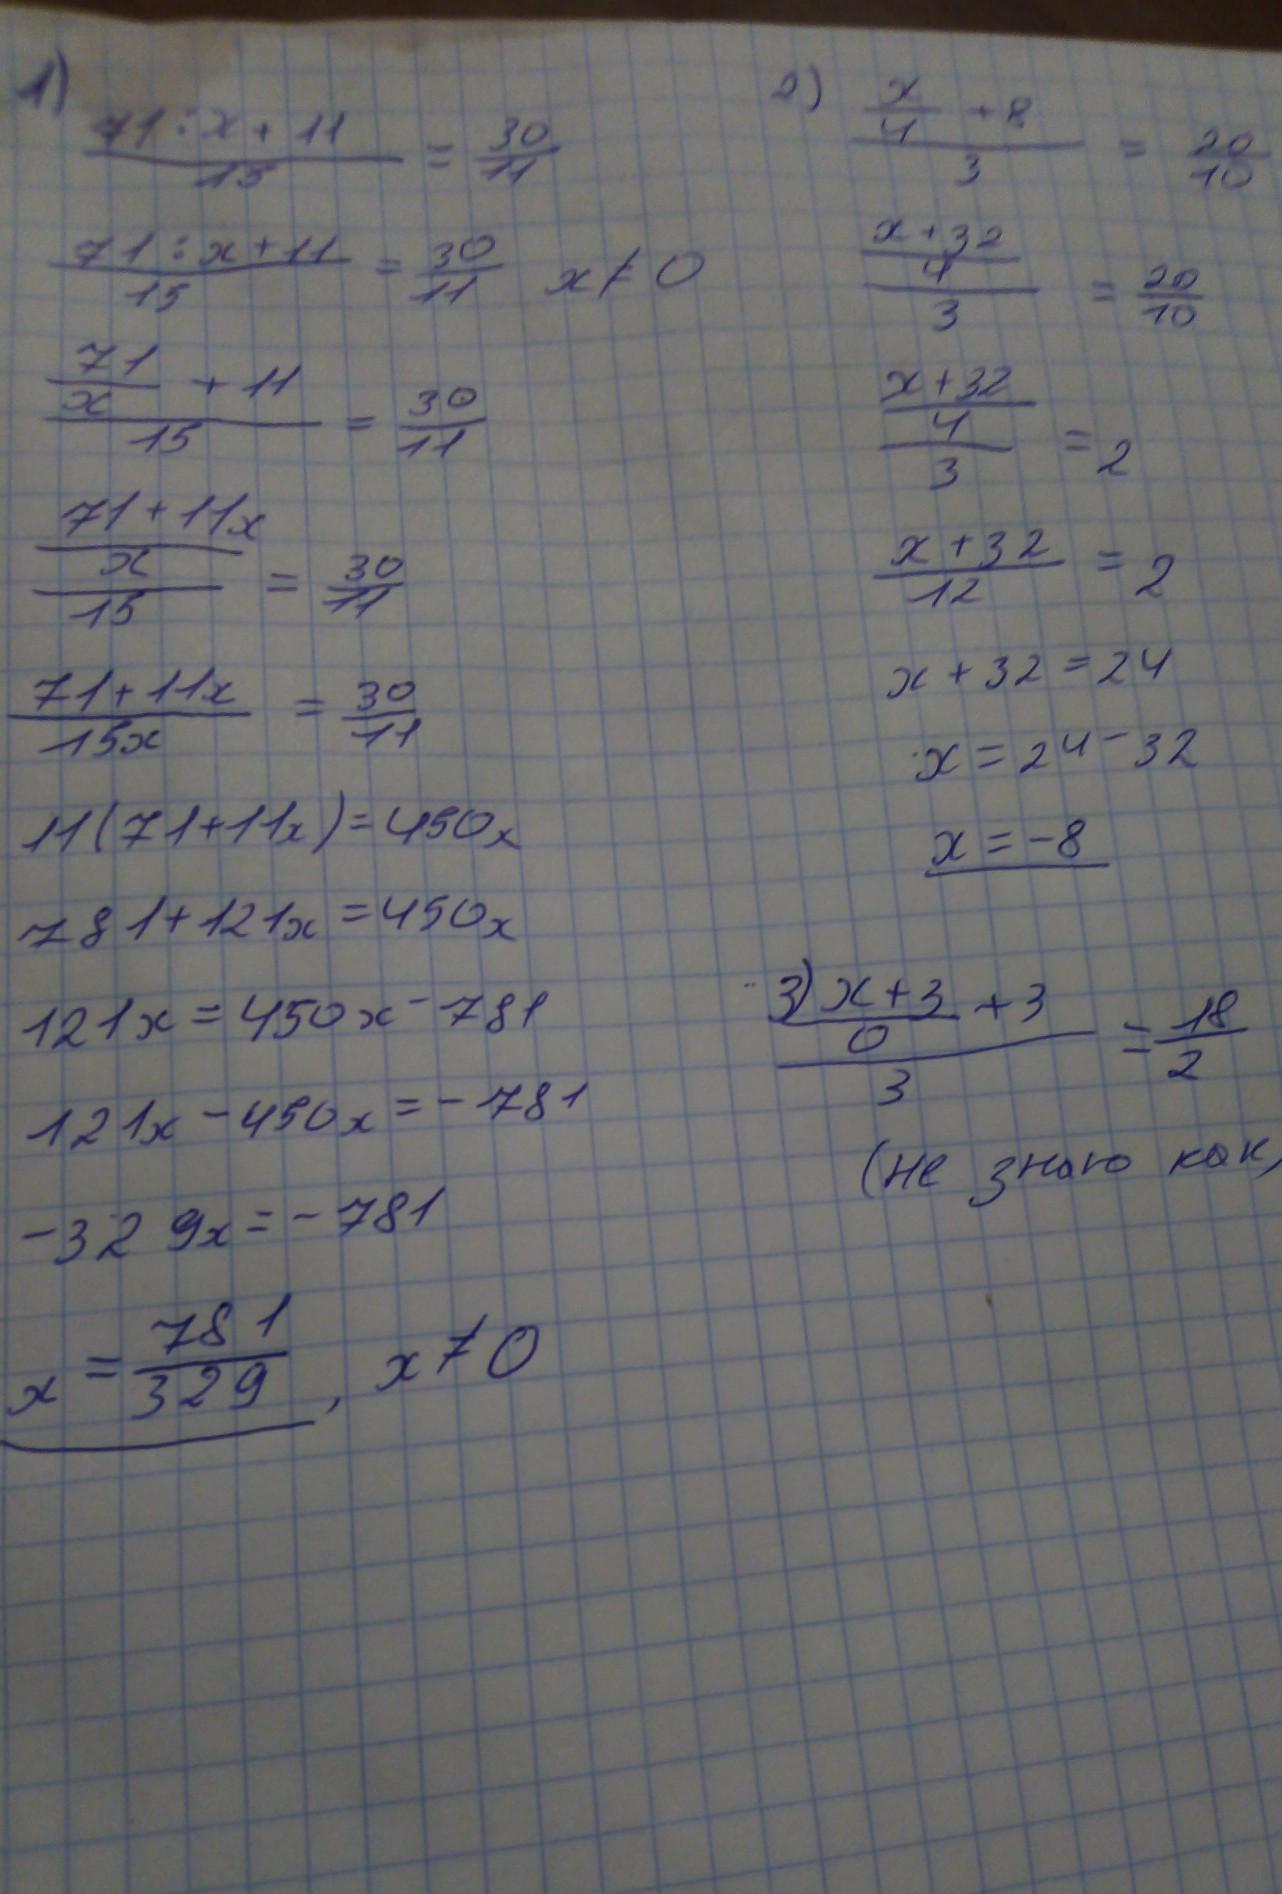 1)
71 : x + 11 / 15 = 30 / 11
71 : x + 11 / 15 = 30 / 11 x ≠ 0
71 / x + 11 / 15 = 30 / 11
71 + 11x / x / 15 = 30 / 11
71 + 11x / 15x = 30 / 11
11(71+11x) = 450x
781+121x = 450x
121x = 450x - 781
121x - 450x = - 781
-329x = - 781
x = 781 / 329, x ≠ 0
2) x / 4 + 8 / 3 = 20 / 10
x + 32 / 4 / 3 = 20 / 10
x + 32 / 4 / 3 = 2
x + 32 / 12 = 2
x + 32 = 24
x = 24 - 32
x = -8
3) x + 3 / 0 + 3 / 3 = 18 / 2
(не знаю как)